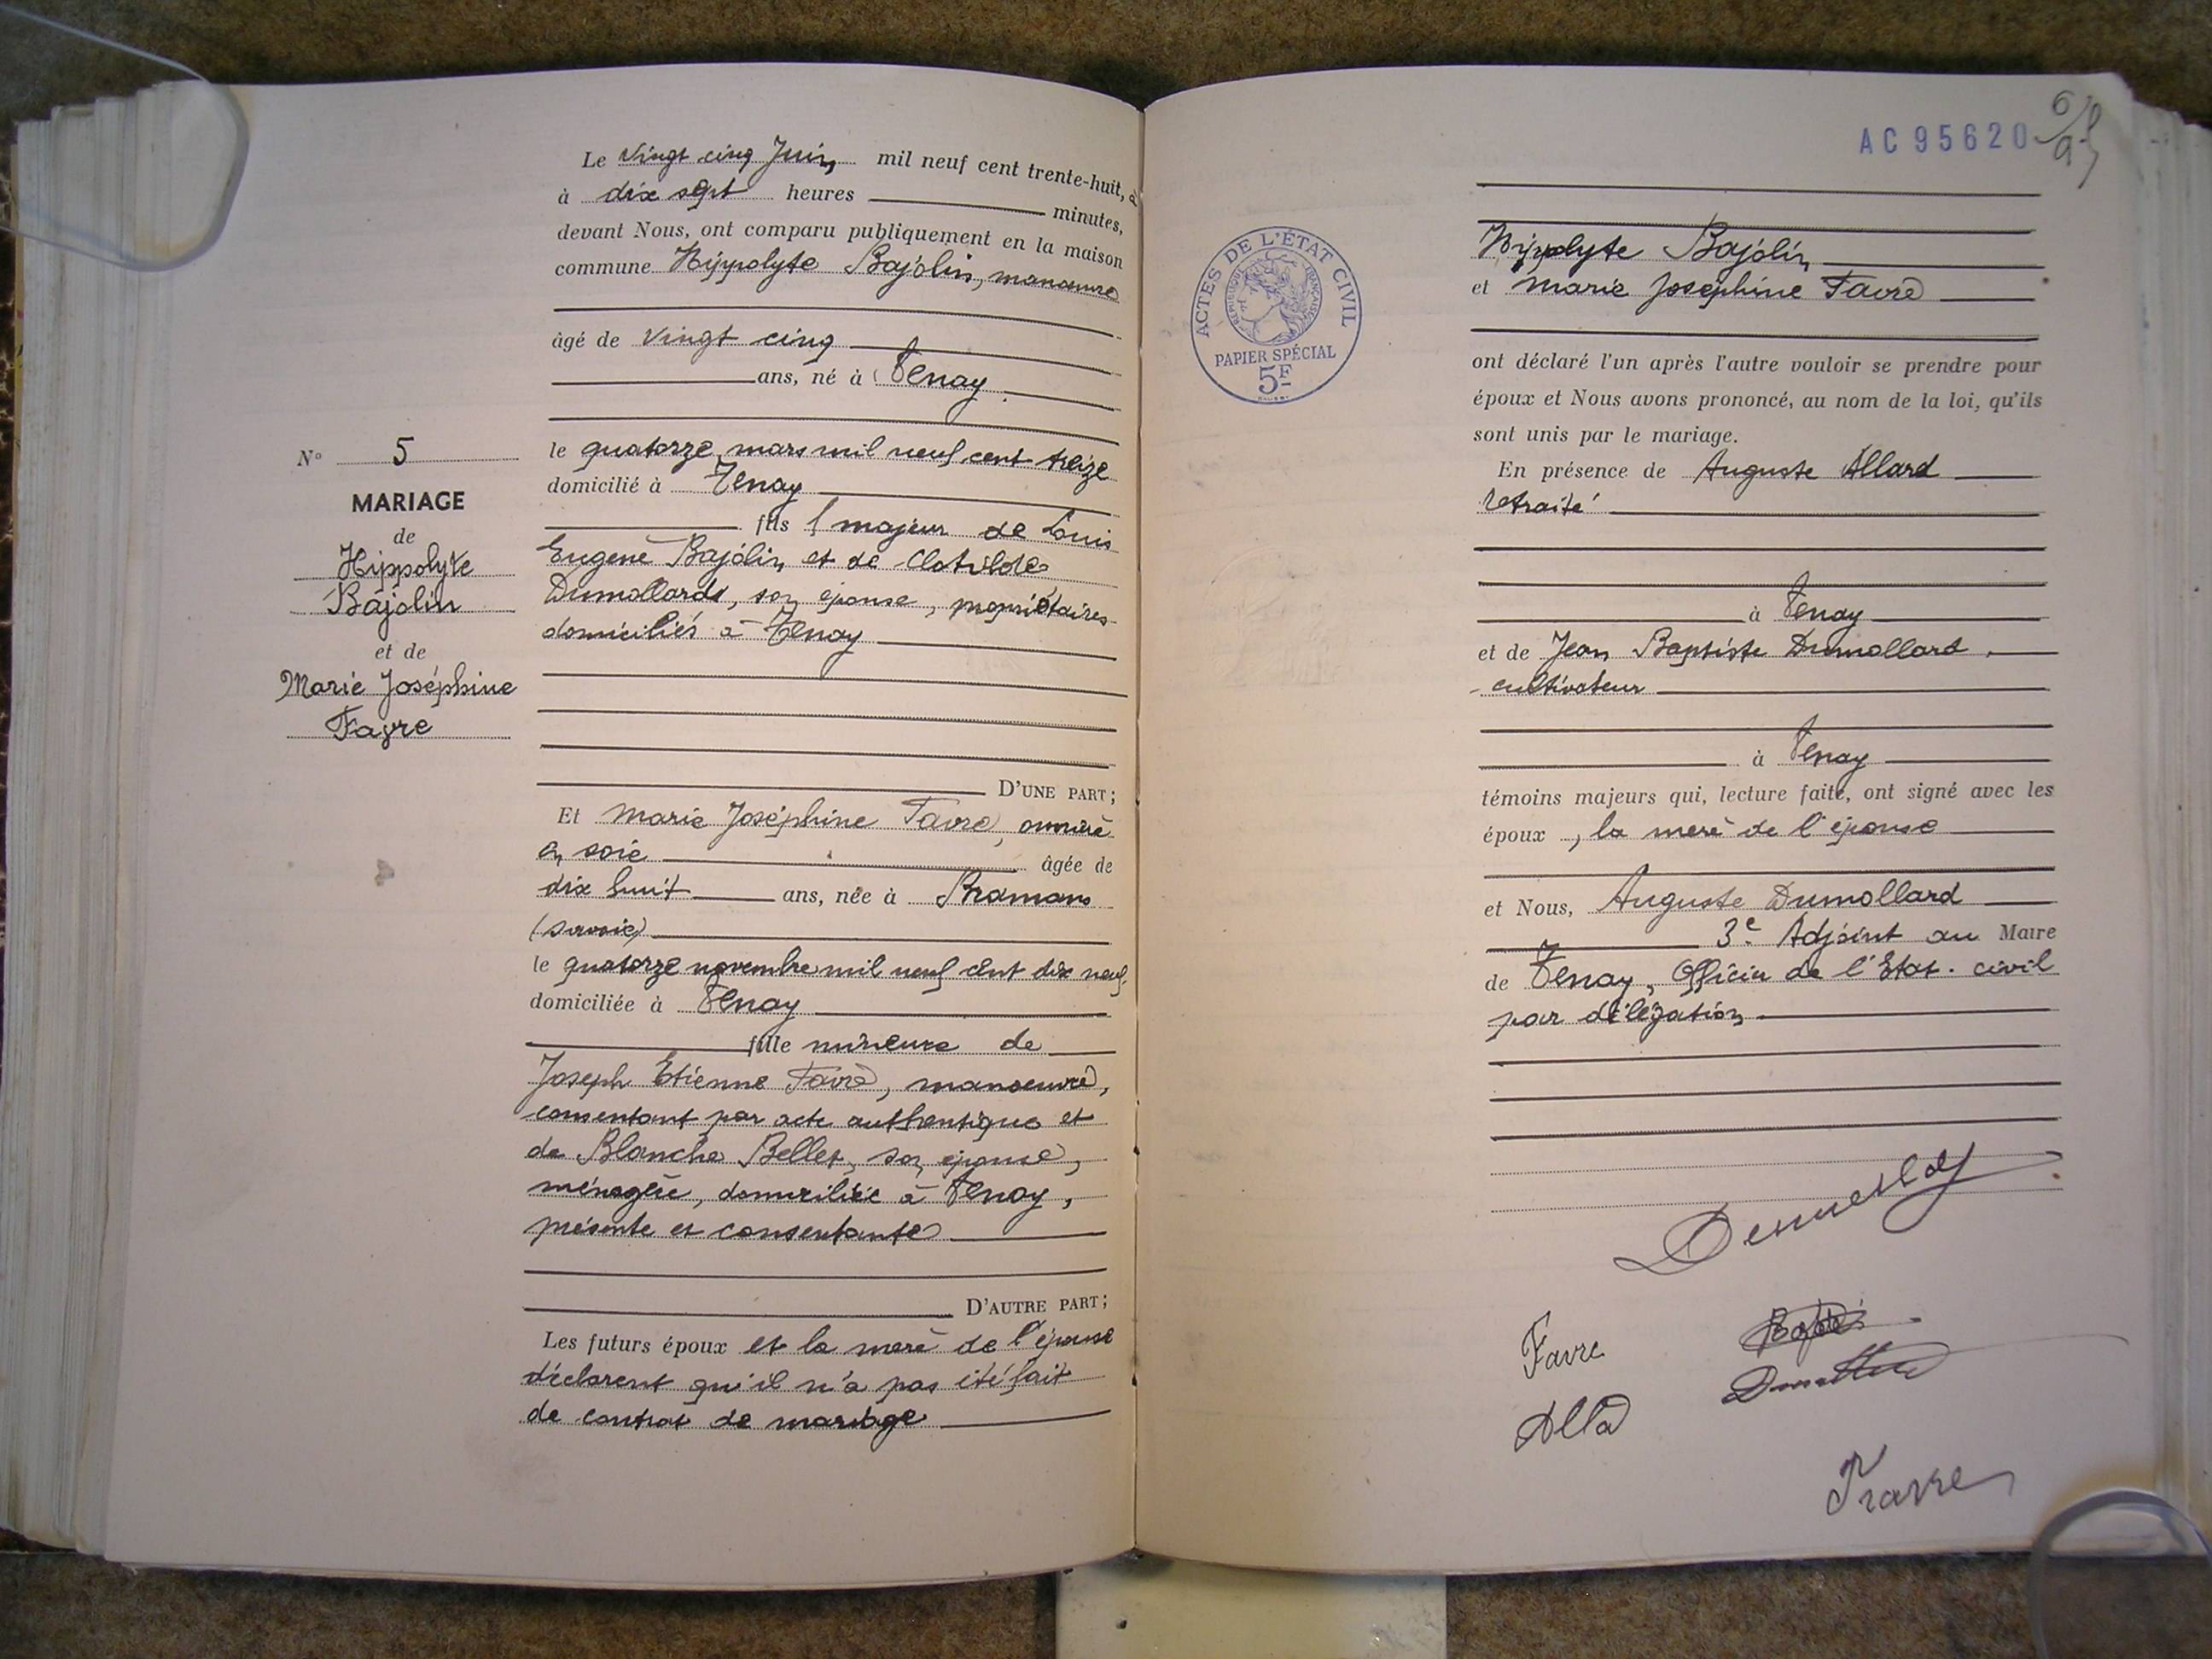 Le Vingt cinq Juin mil neuf cent trente-huit,
à dix sept heures minutes,
devant Nous, ont comparu publiquement en la maison
commune Hippolyte Bajolin, manœuvre
âgé de vingt cinq
ans, né à Tenay
le quatorze mars mil neuf cent treize
domicilié à Tenay
fils majeur de Louis
Eugène Bajolin et de Clotilde
Dumollard, son épouse, propriétaires
domiciliés à Tenay
D'UNE PART;
N° 5
MARIAGE
de
Hippolyte
Bajolin
et de
Marie Joséphine
Favre
Et Marie Joséphine Favre, ouvrière
en soie âgée de
dix huit ans, née à Bramans
(Savoie)
le quatorze novembre mil neuf cent dix neuf
domiciliée à Tenay
fille mineure de
Joseph Etienne Favre, manoeuvre,
consentant par acte authentique et
de Blanche Bellet, son épouse,
ménagère, domiciliée à Tenay,
présente et consentante
D'AUTRE PART;
Les futurs époux et la mère de l'épouse
déclarent qu'il n'a pas été fait
de contrat de mariage
AC 95620
ACTES DE L'ÉTAT CIVIL
RÉPUBLIQUE FRANÇAISE
PAPIER SPÉCIAL
5F
Hippolyte Bajolin
et Marie Joséphine Favre
ont déclaré l'un après l'autre vouloir se prendre pour
époux et Nous avons prononcé, au nom de la loi, qu'ils
sont unis par le mariage.
En présence de Auguste Allard
retraité
à Tenay
et de Jean Baptiste Dumollard,
cultivateur
à Tenay
témoins majeurs qui, lecture faite, ont signé avec les
époux, la mère de l'épouse
et Nous, Auguste Dumollard
3e Adjoint au Maire
de Tenay, Officier de l'Etat-civil
par délégation
Favre
Favre